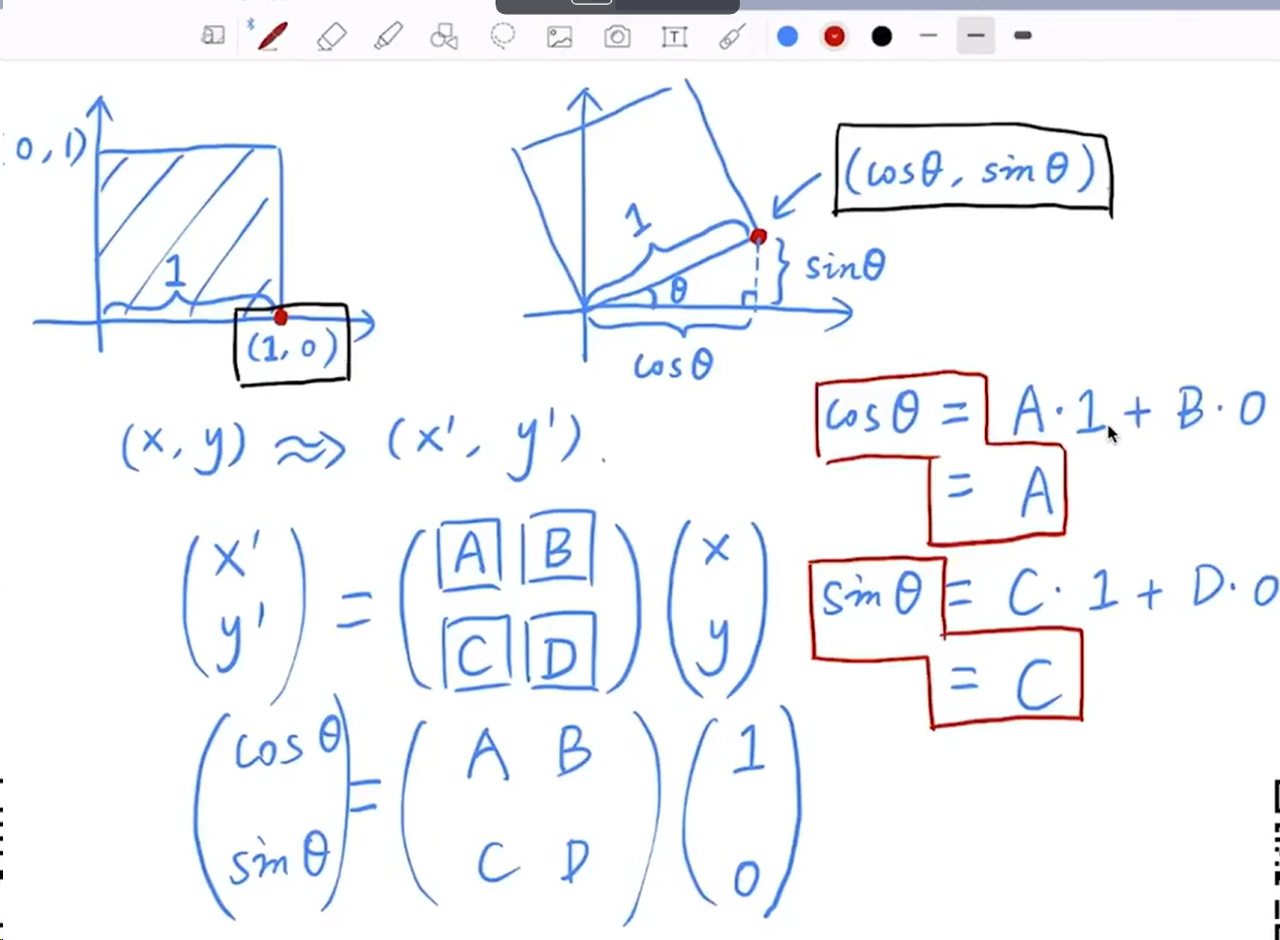 0, 1)
1
(1, 0)
1
θ
sinθ
cosθ
(cosθ, sinθ)
(x, y) ⇝ (x', y')
(x' y') = (A B C D) (x y)
(cosθ sinθ) = (A B C D) (1 0)
cosθ = A·1 + B·0
= A
sinθ = C·1 + D·0
= C
T